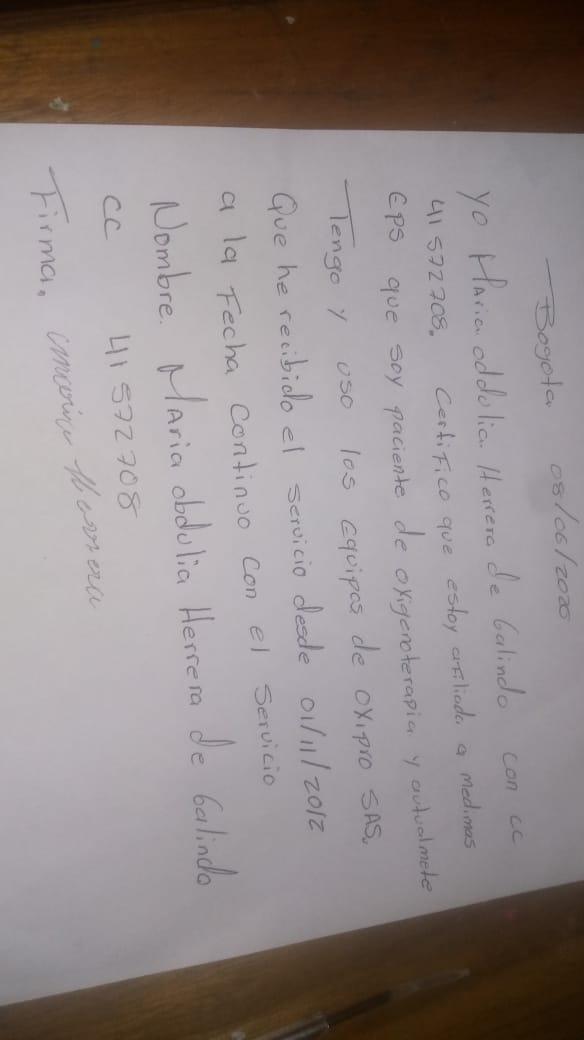 Bogota 08/06/2020
Yo Maria oddolia Herrera de Galindo con cc
41 572 708. Certifico que estoy afiliada a medimas
Eps que soy paciente de oxigenoterapia y autualmete
Tengo y uso los equipos de oxipro SAS.
Que he recibido el servicio desde 01/11/2012
a la Fecha continuo con el servicio
Nombre. Maria obdulia Herrera de Galindo
cc 41 572 708
Firma. Herrera